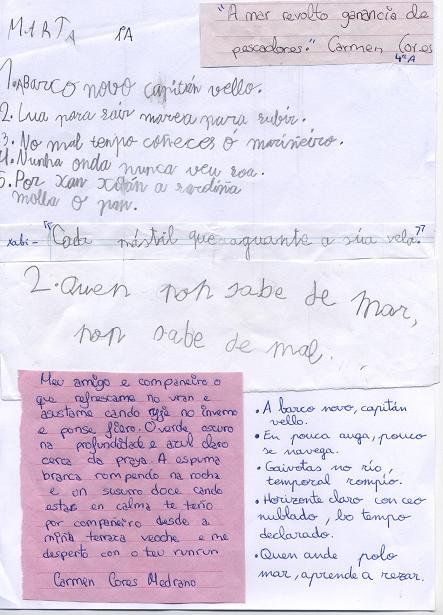 MARTA 1ºA
"A mar revolto ganancia de
pescadores." Carmen Cores
4ºA
1. A Barco novo capitán vello.
2. Lua para saír marea para subir.
3. No mal tempo coñeces ó mariñeiro.
4. Nunha onda nunca veu soa.
5. Por Xan Xoán a sardiña
molla o pan.
xabi - "Cada mástil que aguante a súa vela."
2. Quen non sabe de mar,
non sabe de mal.
Meu amigo e companeiro o
que refrescame no vran e
asustame cando no inverno
e ponse fiero. O verde escuro
na profundidade e azul claro
cerca da praya. A espuma
branca rompendo na rocha
e un susurro doce cando
estas en calma te teño
por compañeiro desde a
miña terraza veoche e me
desperto con o teu runrun
Carmen Cores Medrano
• A barco novo, capitán
vello.
• En pouca auga, pouco
se navega.
• Gaivotas no río,
temporal rompío.
• Horizonte claro con ceo
nublado, bo tempo
declarado.
• Quen ande polo
mar, aprende a rezar.